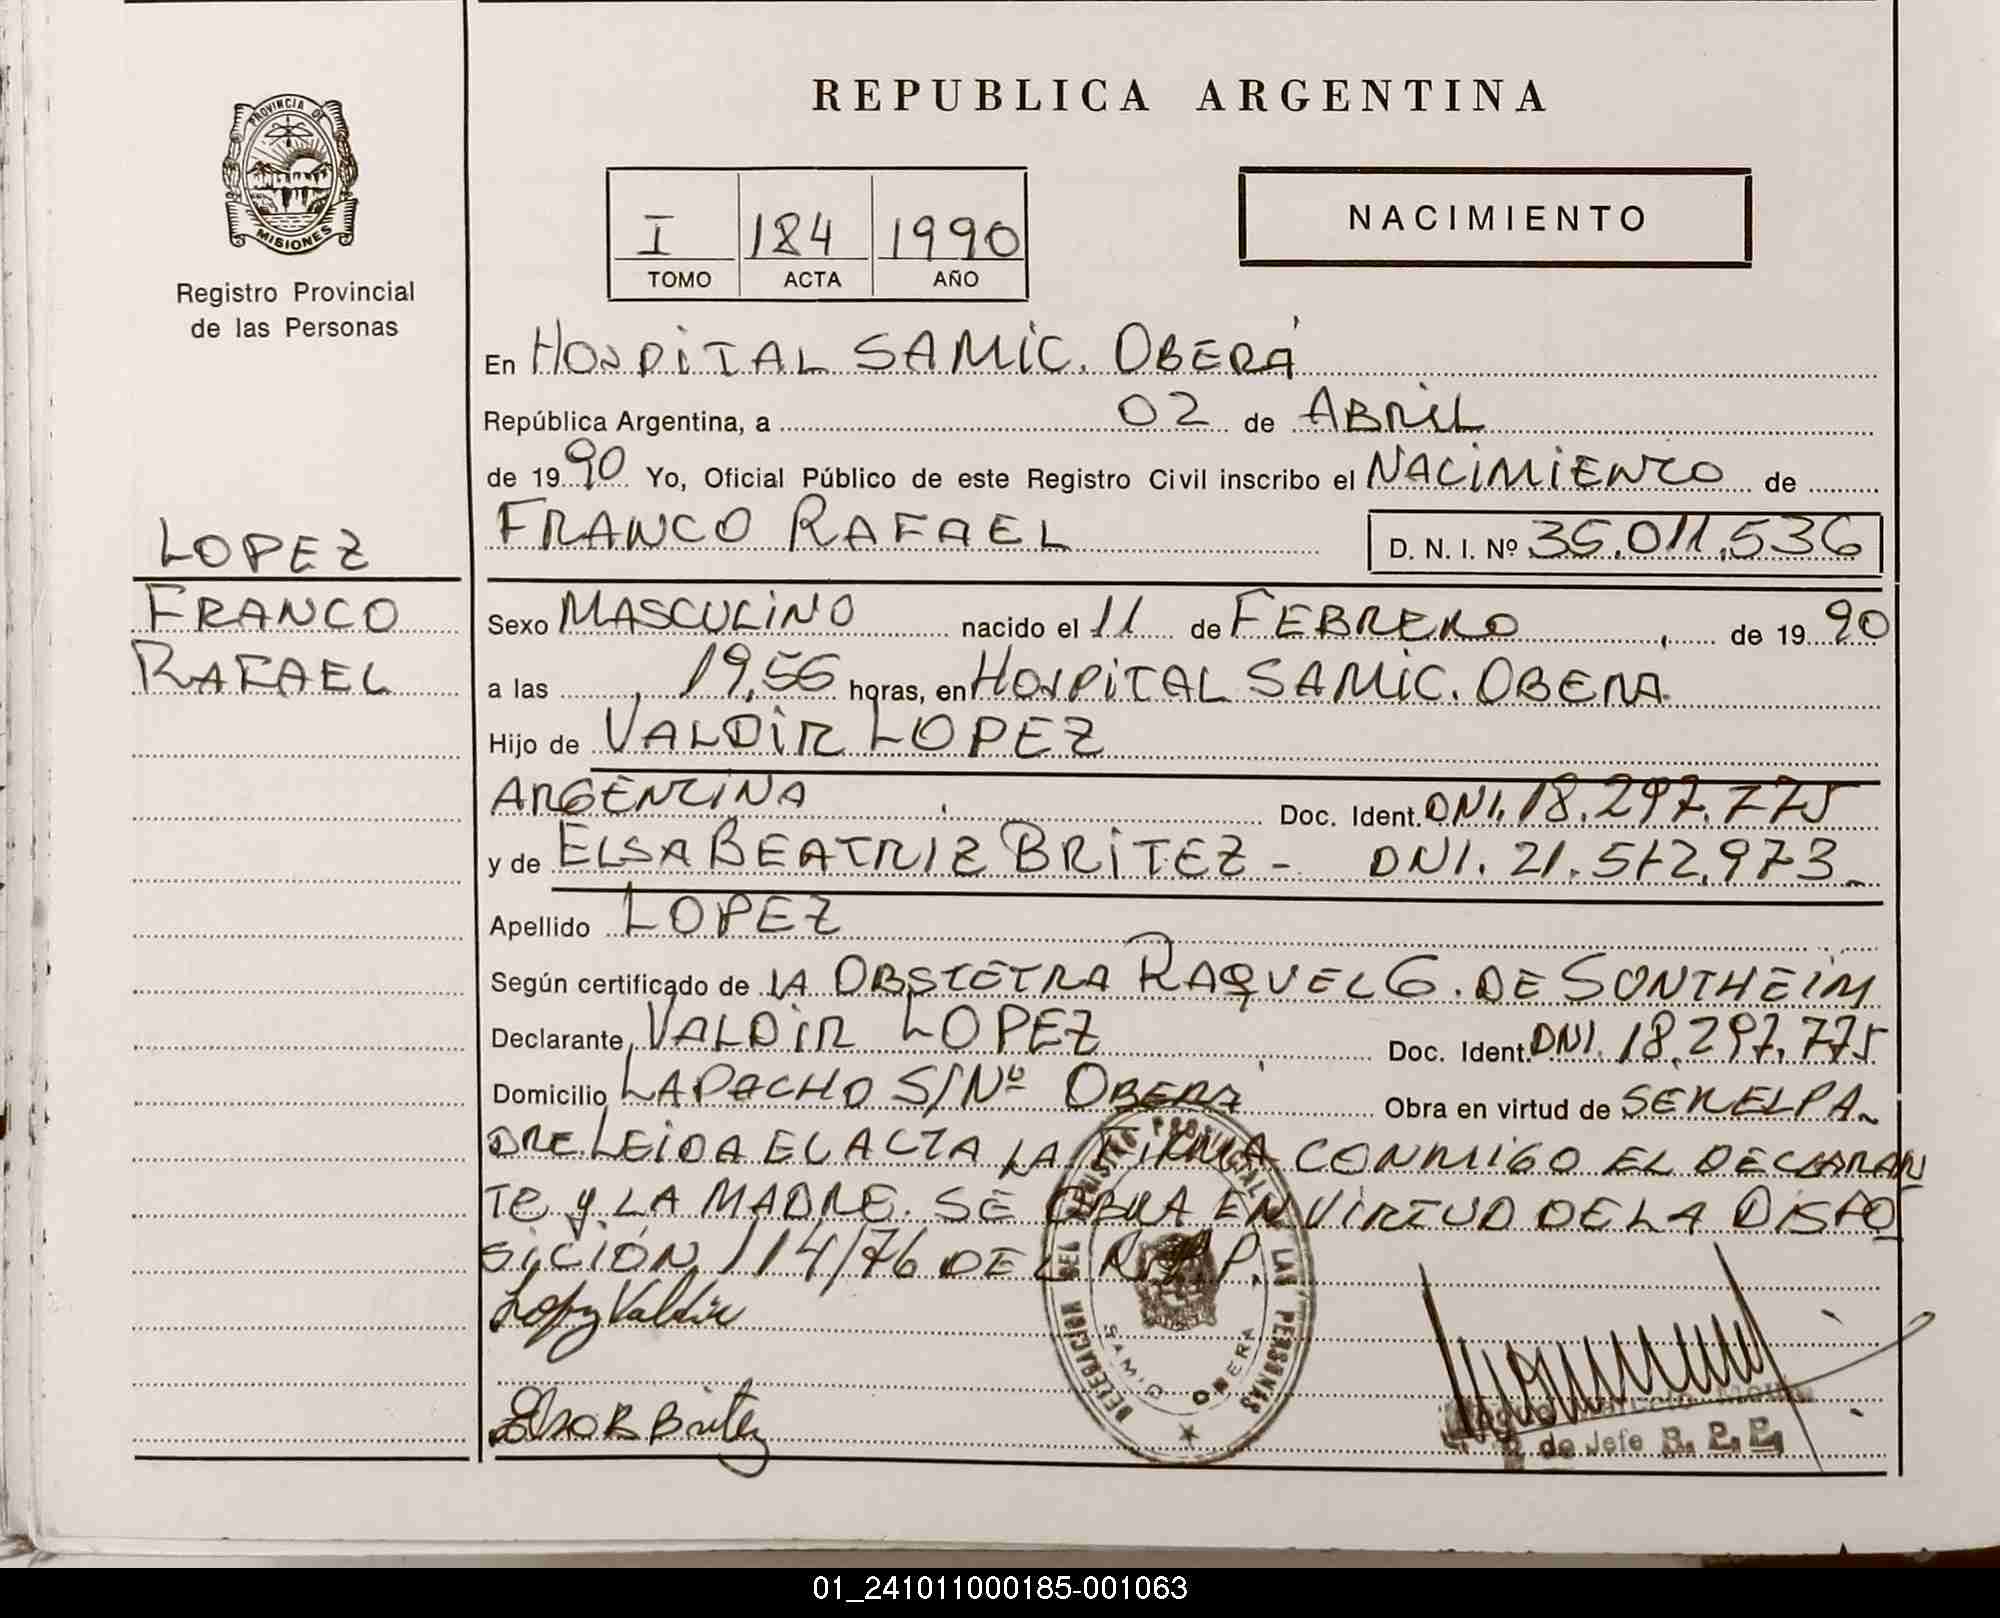 REPUBLICA ARGENTINA
PROVINCIA DE
MISIONES
Registro Provincial
de las Personas
I 184 1990
TOMO ACTA AÑO
NACIMIENTO
En HOSPITAL SAMIC. OBERÁ
República Argentina, a 02 de ABRIL
de 1990 Yo, Oficial Público de este Registro Civil inscribo el NACIMIENTO de
FRANCO RAFAEL D. N. I. Nº 35.011.536
LOPEZ
FRANCO
RAFAEL
Sexo MASCULINO nacido el 11 de FEBRERO de 1990
a las 19,56 horas, en HOSPITAL SAMIC. OBERA
Hijo de VALDIR LOPEZ
ARGENTINA Doc. Ident. DNI. 18.297.775
y de ELSA BEATRIZ BRITEZ - DNI. 21.512.973_
Apellido LOPEZ
Según certificado de LA OBSTETRA RAQUEL G. DE SONTHEIM
Declarante VALDIR LOPEZ Doc. Ident. DNI. 18.297.775
Domicilio LAPACHO S/Nº OBERÁ Obra en virtud de SER EL PA
DRE. LEIDA EL ACTA LA FIRMA CONMIGO EL DECLARAN
TE Y LA MADRE. SE OBRA EN VIRTUD DE LA DISPO
SICIÓN 114/76 DEL R.P.P.
Lopez Valdir
Elsa B Britez
DELEGACION DEL REGISTRO PROVINCIAL DE LAS PERSONAS
SAMIC OBERA
de Jefe R. P. P.
01_241011000185-001063